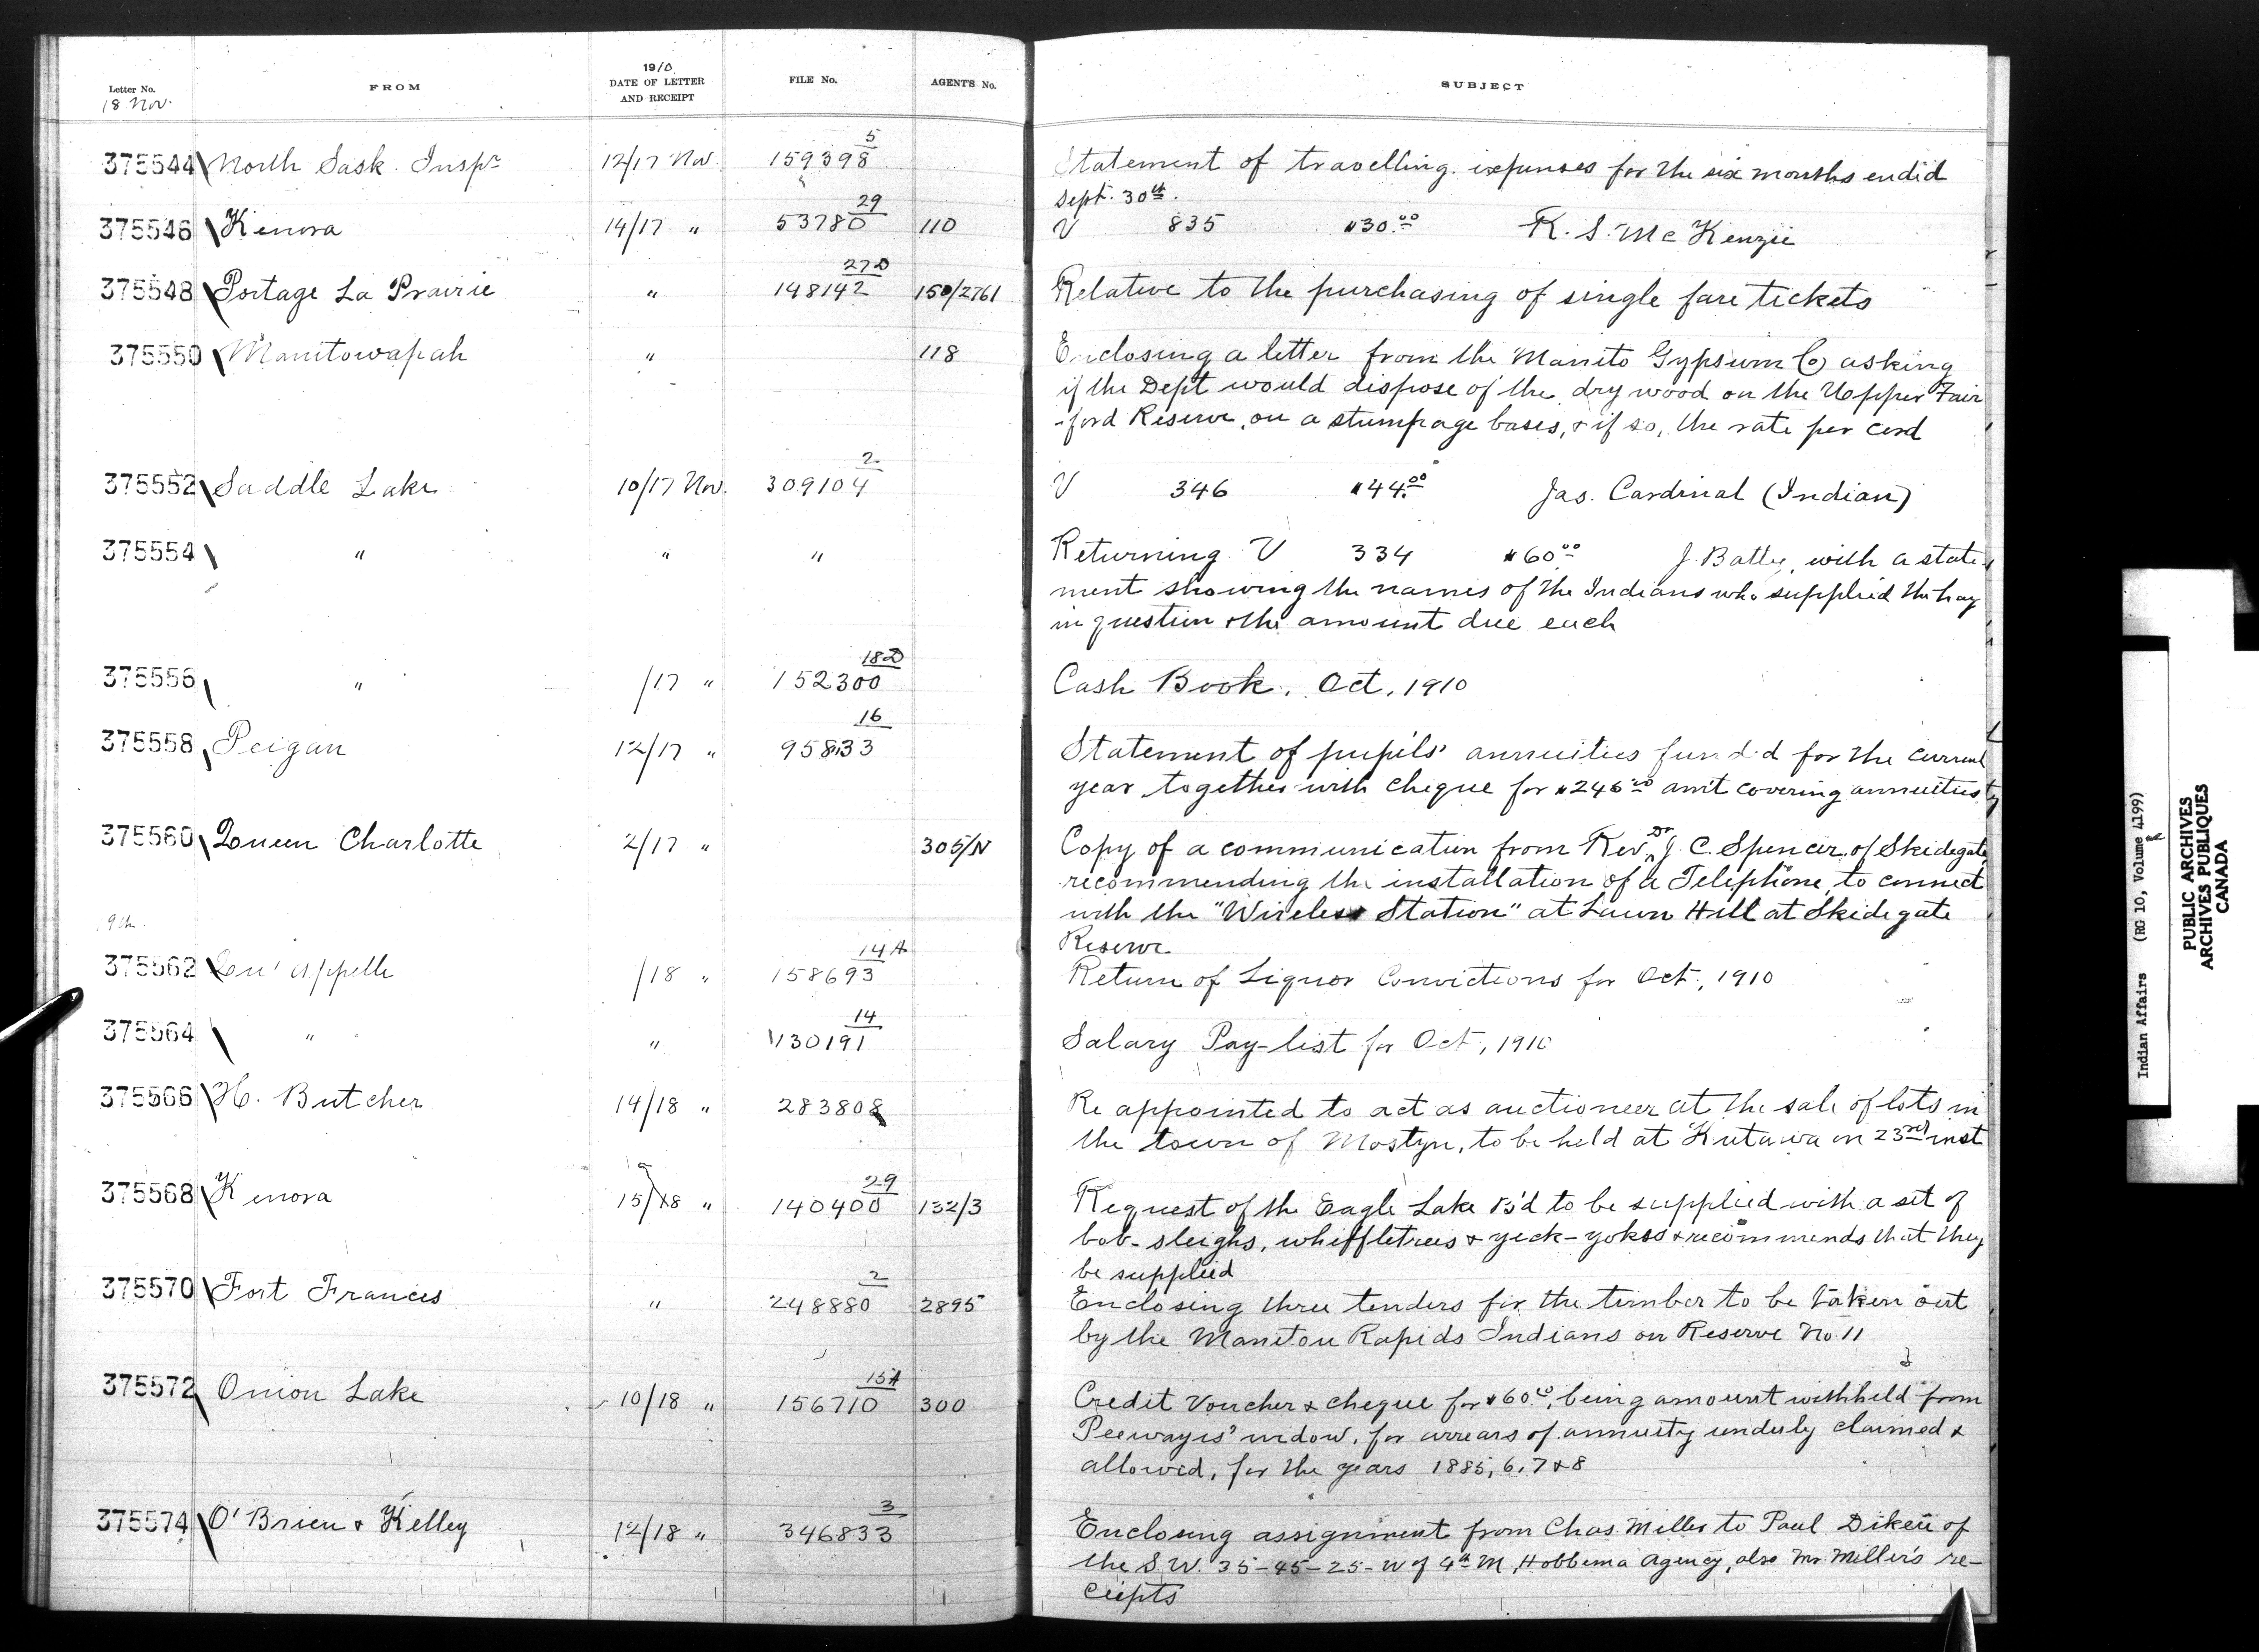 19/0
Letter No. FROM DATE OF LETTER AND RECEIPT FILE No. AGENT'S No. SUBJECT
18 Nov.
375544 North Sask. Inspr 12/17 Nov. 159398 5 Statement of travelling expenses for the six months ended
Sept. 30th.
375546 Kenora 14/17 " 53780 29 110 V 835 $30.00 R. S. McKenzie
375548 Portage La Prairie " 148142 27D 150/2761 Relative to the purchasing of single fare tickets
375550 Manitowapah " 118 Enclosing a letter from the Manito Gypsum Co asking
if the Dept would dispose of the dry wood on the Upper Fair
-ford Reserve, on a stumpage bases, & if so, the rate per cord
375552 Saddle Lake 10/17 Nov. 309104 2 V 346 $44.00 Jas. Cardinal (Indian)
375554 " " " Returning V 334 $60.00 J. Batty, with a state-
ment showing the names of the Indians who supplied the hay
in question & the amount due each
375556 " /17 " 152300 18D Cash Book. Oct, 1910
375558 Peigan 12/17 " 95833 16 Statement of pupils' annuities funded for the current
year together with cheque for $246.00 am't covering annuities
375560 Queen Charlotte 2/17 " 305/N Copy of a communication from Rev. Dr J. C. Spencer, of Skidegate,
recommending the installation of a Telephone, to connect
with the "Wireless Station" at Lawn Hill at Skidegate
Reserve
9th
375562 Qu'appelle /18 " 158693 14A Return of Liquor Convictions for Oct, 1910
375564 " " 130191 14 Salary Pay-list for Oct, 1910
375566 H. Butcher 14/18 " 283808 Re appointed to act as auctioneer at the sale of lots in
the town of Mostyn, to be held at Kutawa on 23rd inst
375568 Kenora 15/18 " 140400 29 132/3 Request of the Eagle Lake B'd to be supplied with a set of
bob-sleighs, whiffletrees & yeck-yokes & recommends that they
be supplied
375570 Fort Frances " 248880 2 2895 Enclosing three tenders for the timber to be taken out
by the Manitou Rapids Indians on Reserve No. 11
375572 Onion Lake 10/18 " 156710 15A 300 Credit Voucher & cheque for $60.00, being amount withheld from
Peewayis' widow, for arrears of annuity unduly claimed &
allowed, for the years 1885, 6, 7 & 8
375574 O'Brien & Kelley 12/18 " 346833 3 Enclosing assignment from Chas. Miller to Paul Dikeu of
the S.W. 35-45-25-W of 4th M, Hobbema Agency, also Mr. Miller's re-
ceipts
Indian Affairs (RG 10, Volume 4199)
PUBLIC ARCHIVES
ARCHIVES PUBLIQUES
CANADA